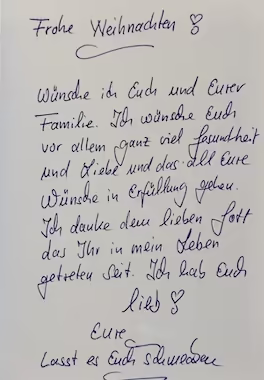 Frohe Weihnachten
Wünsche ich Euch und Eurer
Familie. Ich wünsche Euch
vor allem ganz viel Gesundheit
und Liebe und das all Eure
Wünsche in Erfüllung gehen.
Ich danke dem lieben Gott
das Ihr in mein Leben
getreten seit. Ich hab Euch
lieb
Eure
Lasst es Euch schmecken